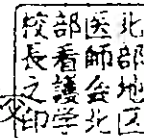 北部地区
医師会北
部看護学
校長之印